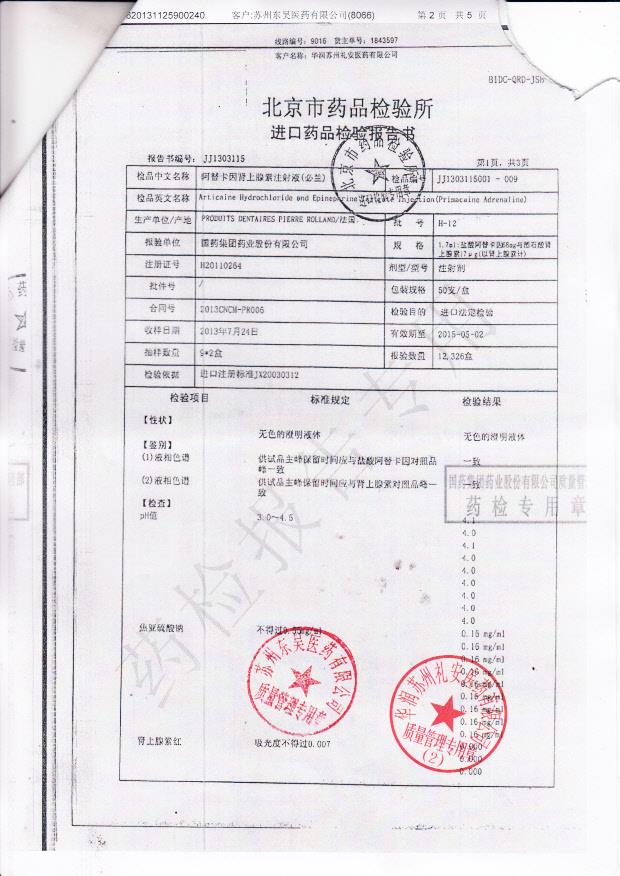 620131125900240 客户:苏州东吴医药有限公司(8066) 第 2 页 共 5 页
线路编号: 9016 货主单号: 1843597
客户名称: 华润苏州礼安医药有限公司
BIDC-QRD-JSB
北京市药品检验所
进口药品检验报告书
报告书编号: JJ1303115 第1页, 共3页
检品中文名称 阿替卡因肾上腺素注射液(必兰) 检品编号 JJ1303115001 - 009
检品英文名称 Articaine Hydrochloride and Epinephrine Injection(Primacaine Adrenaline)
生产单位/产地 PRODUITS DENTAIRES PIERRE ROLLAND/法国 批 号 H-12
报验单位 国药集团药业股份有限公司 规 格 1.7ml:盐酸阿替卡因68mg与酒石酸肾上腺素17μg(以肾上腺素计)
注册证号 H20110264 剂型/型号 注射剂
批件号 / 包装规格 50支/盒
合同号 2013CNCM-PR006 检验目的 进口法定检验
收样日期 2013年7月24日 有效期至 2015-05-02
抽样数量 9*2盒 报验数量 12,326盒
检验依据 进口注册标准JX20030312
检验项目 标准规定 检验结果
【性状】
无色的澄明液体 无色的澄明液体
【鉴别】
(1)液相色谱 供试品主峰保留时间应与盐酸阿替卡因对照品峰一致 一致
(2)液相色谱 供试品主峰保留时间应与肾上腺素对照品峰一致 一致
【检查】
pH值 3.0~4.5 4.1
4.0
4.1
4.0
4.0
4.0
4.0
4.0
4.0
焦亚硫酸钠 不得过0.55mg/ml 0.15 mg/ml
0.16 mg/ml
0.16 mg/ml
0.16 mg/ml
0.16 mg/ml
0.16 mg/ml
0.16 mg/ml
0.16 mg/ml
0.16 mg/ml
肾上腺素红 吸光度不得过0.007 0.000
0.000
0.000
北京市药品检验所
国药集团药业股份有限公司质量管
药检专用章
苏州东吴医药有限公司
质量管理专用章
华润苏州礼安医药有限公司
质量管理专用章
(2)
药检报告专用